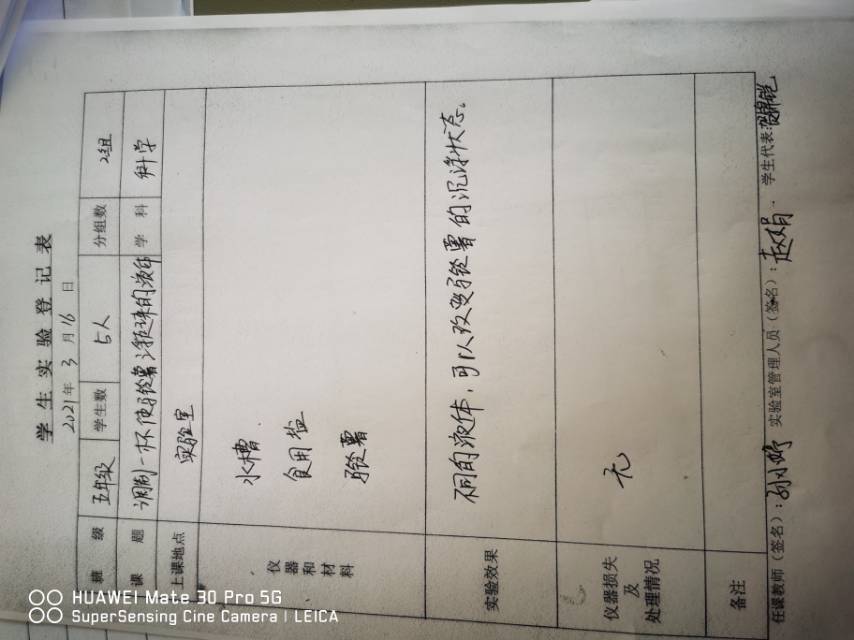 学生实验登记表
2021年3月16日
班级 五年级 学生数 5人 分组数 2组
课题 调制一杯使马铃薯浮起来的液体 学科 科学
上课地点 实验室
仪器和材料 水槽
食用盐
马铃薯
实验效果 不同的液体，可以改变马铃薯的沉浮状态。
仪器损失及处理情况 无
备注
任课教师（签名）：孙小婷 实验室管理人员（签名）：赵娟 学生代表：
HUAWEI Mate 30 Pro 5G
SuperSensing Cine Camera | LEICA